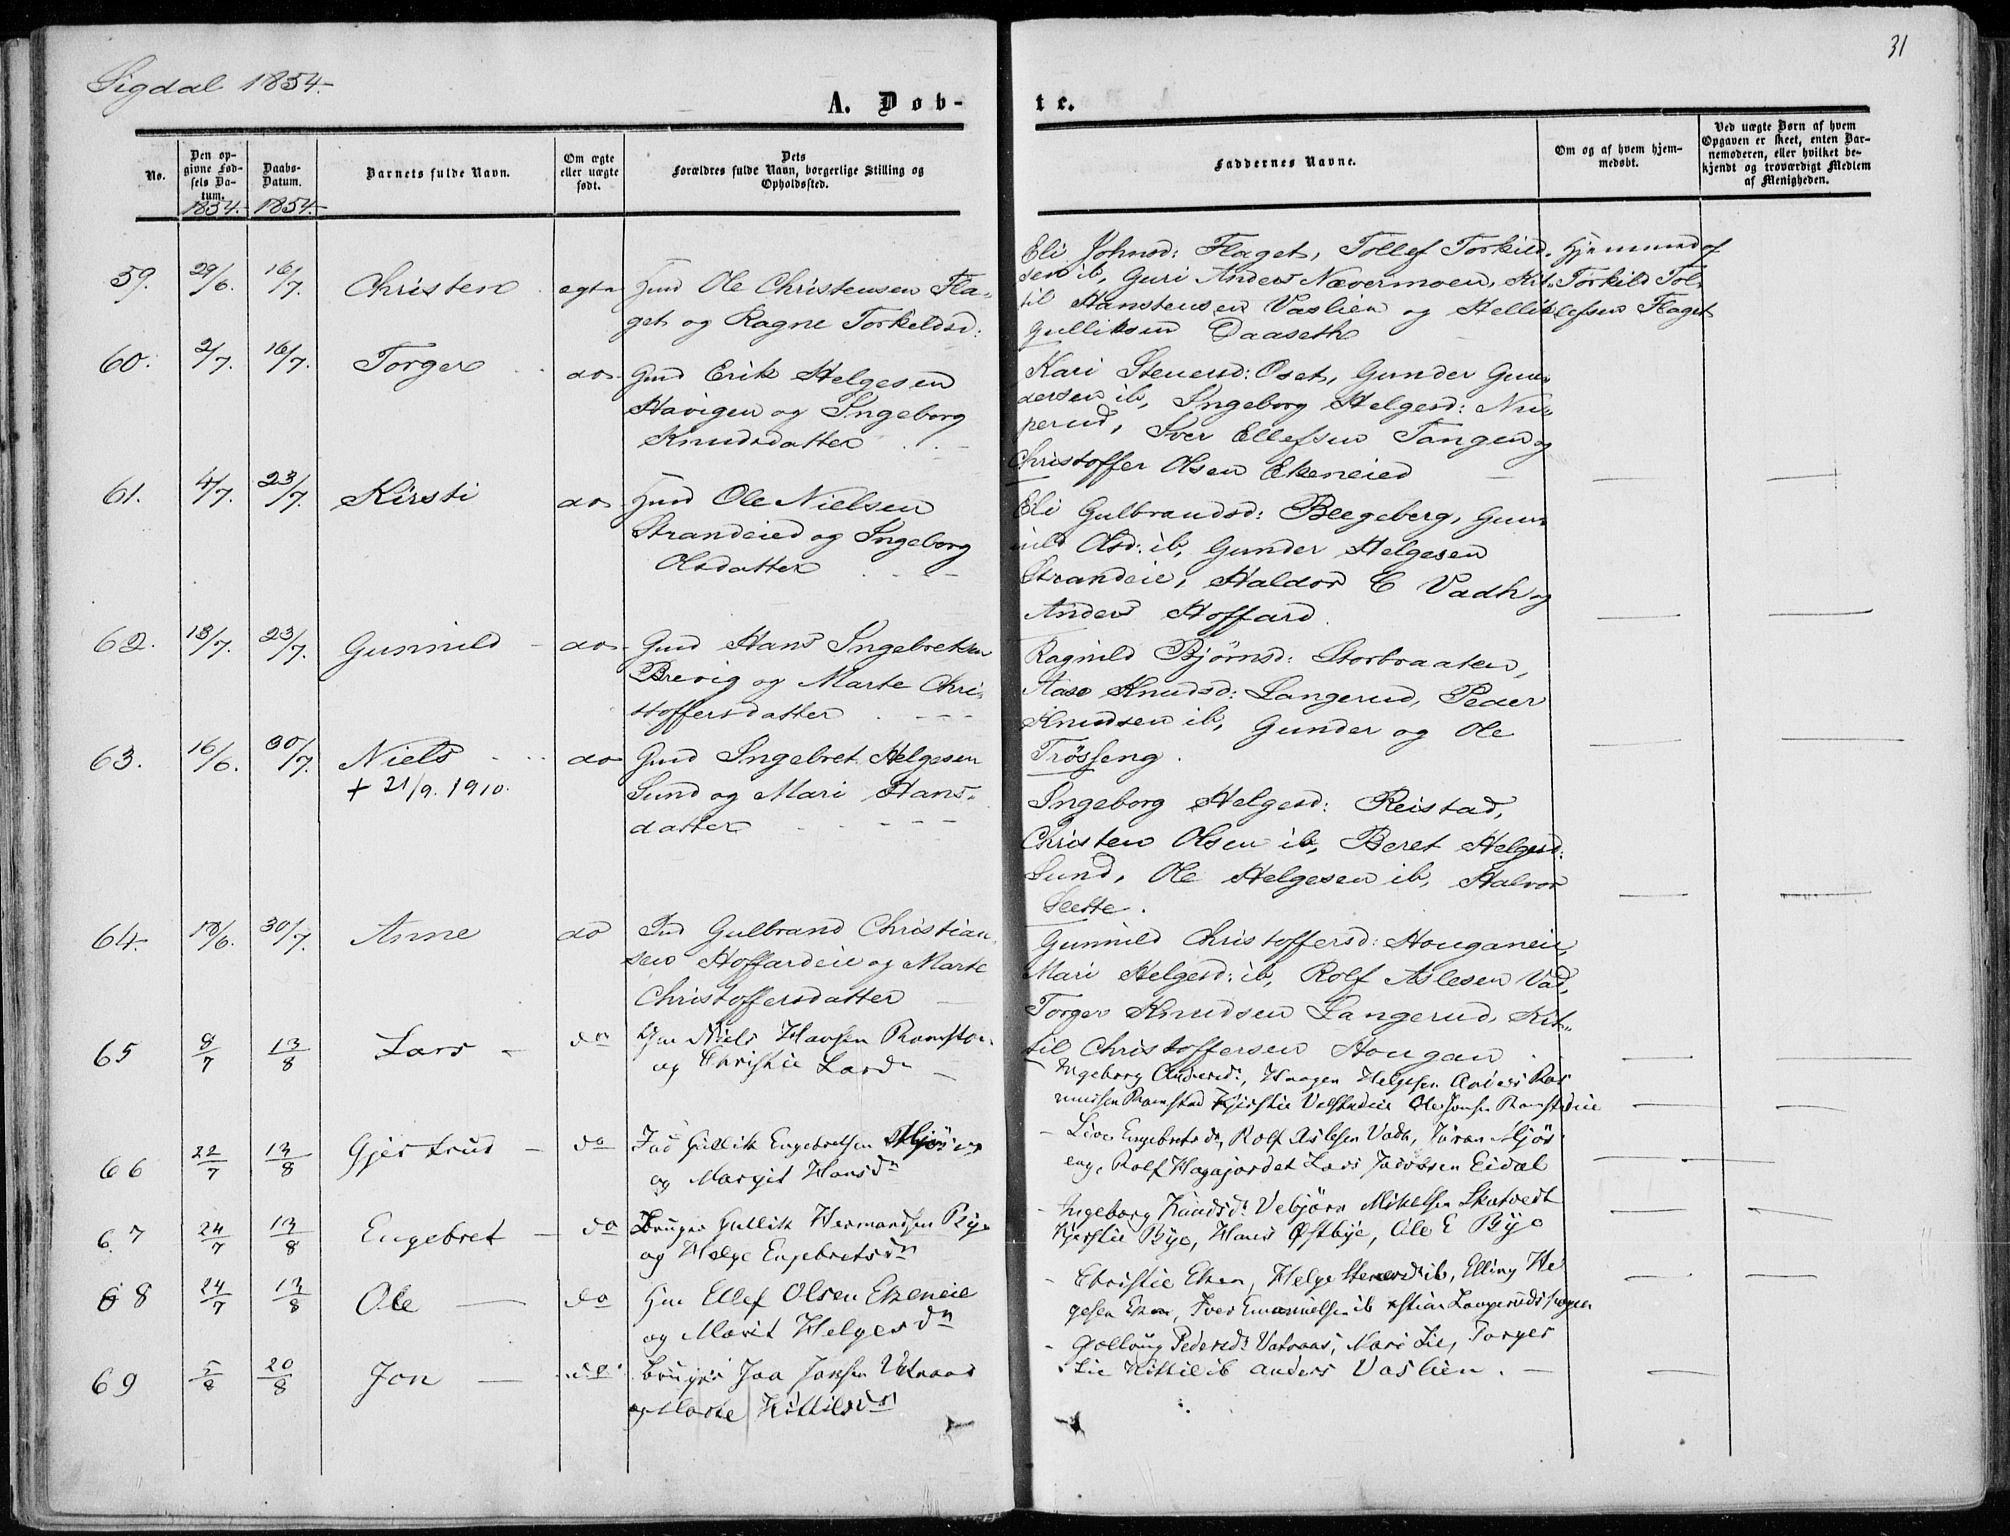 31
Sigdal 1854.-
A. Døb-
te.
No.
Den op-
givne Fød-
sels Da-
tum.
1854.-
Daabs-
Datum.
1854.-
Barnets fulde Navn.
Om ægte
eller uægte
født.
Dets
Forældres fulde Navn, borgerlige Stilling og
Opholdssted.
Faddernes Navne.
Om og af hvem hjem-
medøbt.
Ved uægte Børn af hvem
Opgaven er skeet, enten Bar-
nemoderen, eller hvilket be-
kjendt og troværdigt Medlem
af Menigheden.
59. 29/6. 16/7. Christen egte
Ole Christensen Fla-
get og Ragne Torkeldsd:
Eli Johnsd: Flaget, Tollef Torkild-
sen ib, Guri Anders Nævermoen, Kit-
til Hanstensen Vaslien og Hellik
Gulliksen Daaseth
Hjemmed af
Torkild Tol-
lefsen Flaget
60. 2/7. 16/7. Torger do
Gmd Erik Helgesen
Havigen og Ingeborg
Knudsdatter
Kari Stenersd: Oset, Gunder Gun-
dersen ib, Ingeborg Helgesd: Nu-
perud, Iver Ellefsen Tangen og
Christoffer Olsen Ekeneied
61. 4/7. 23/7. Kirsti do
Ole Nielsen
Strandeied og Ingeborg
Olsdatter
Eli Gulbrandsd: Beegeberg, Gun-
nild Olsd: ib, Gunder Helgesen
Strandeie, Haldor C Vadh og
Anders Hoffard.
62. 13/7. 23/7. Gunnild do
Gmd Hans Ingebretsen
Brevig og Marte Chri-
stoffersdatter
Ragnild Bjørnsd: Storbraaten,
Aase Knudsd: Langerud, Peder
Knudsen ib, Gunder og Ole
Trösseng.
63. 16/6. 30/7. Niels do
+ 21/9. 1910.
Gmd Ingebret Helgesen
Sund og Mari Hans-
datter
Ingeborg Helgesd: Reistad,
Christen Olsen ib, Beret Helgesd:
Sund, Ole Helgesen ib, Halvor
Seette.
64. 18/6. 30/7. Anne do
Ind Gulbrand Christian-
sen Hoffardeie og Marte
Christoffersdatter
Gunnild Christoffersd: Houganeie,
Mari Helgesd: ib, Rolf Aslesen Vad,
Torger Knudsen Langerud, Kit-
til Christoffersen Hougan
65 8/7 13/8 Lars do
Niels Hansen Ramstu
og Christie Larsd
Ingeborg Andersd:, Haagen Helgesen Anders Ras
mussen Ramstad Kjerstie Ole Jonsen Ramstadeie
66 22/7 13/8 Gjertrud do
Gullik Engebretsen Mjøs
og Margit Hansdn
Live Engebretsdn, Rolf Aslesen Vada, Jøran Mjøs
eng, Rolf Hagajordet Lars Jacobsen Eidal
67 24/7 13/8 Engebret do
Bruger Gullik Hermandsen Bye
og Helge Engebretsdn
Ingeborg Knudsd: Vebjørn Mikkelsen Skatvedt
Kjerstie Bye, Hans Østbye, Ole E Bye
68 24/7 13/8 Ole do
Ellef Olsen Ekeneie
og Marit Helgesdn
Christie Eken, Helge Stenersd: ib, Elling He
gesen Eken, Iver Emanuelsen ib
69 5/8 20/8 Jon do
Bruger Jon Jonsen Vatnaas
og Marte Kittilsdn
Gollaug Pedersd: Vatnaas, Mari Lie, Torger
Lie Kittil ib Anders Vaslien.